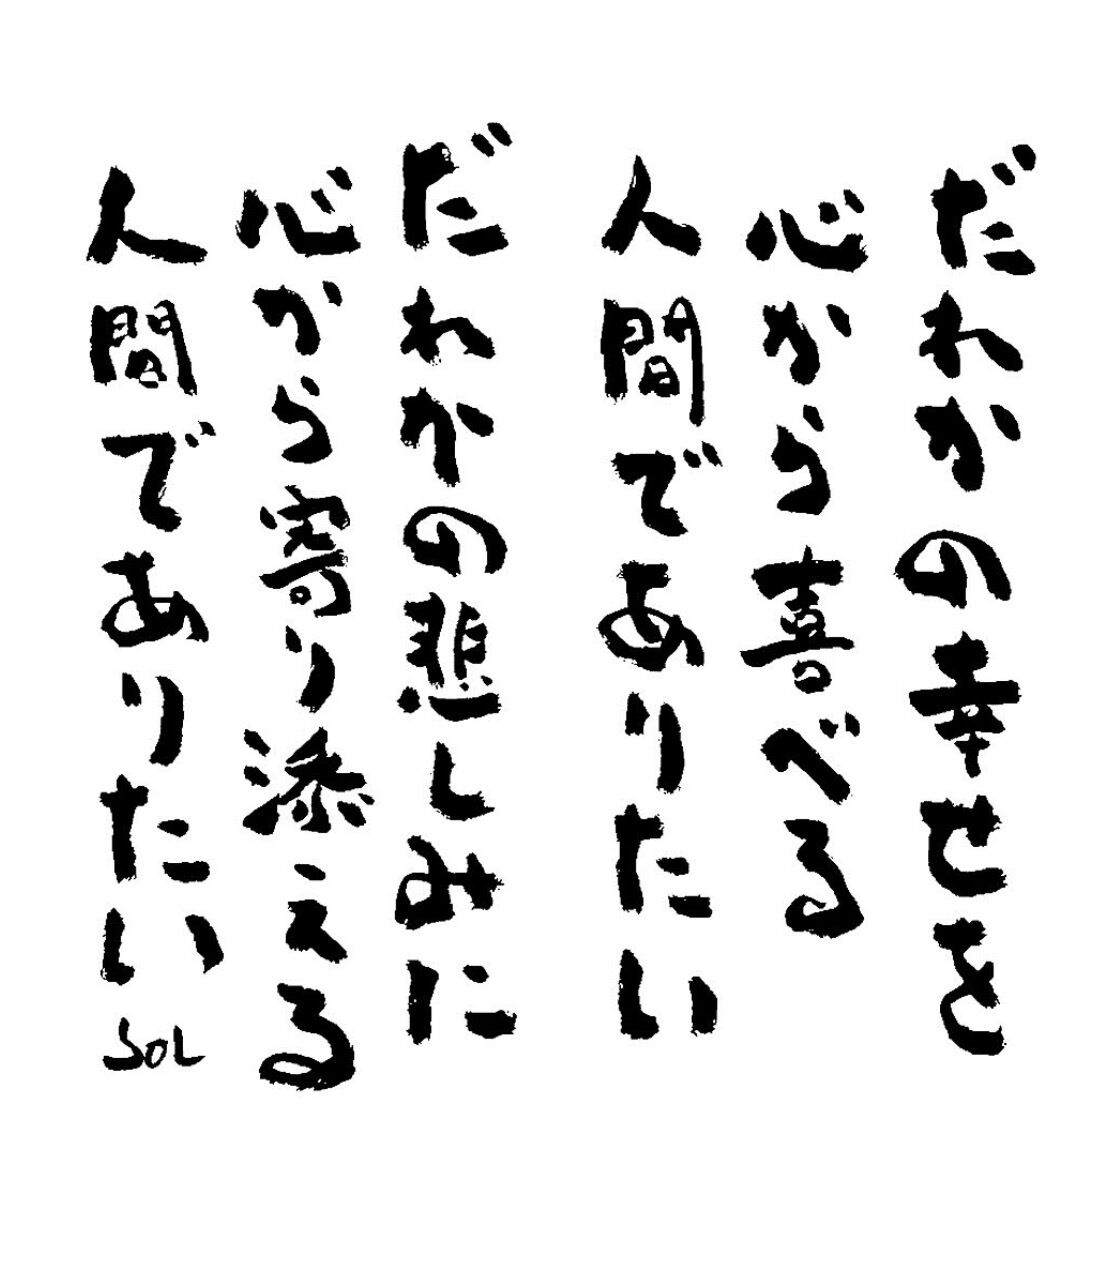 だれかの幸せを
心から喜べる
人間でありたい
だれかの悲しみに
心から寄り添える
人間でありたい
SOL